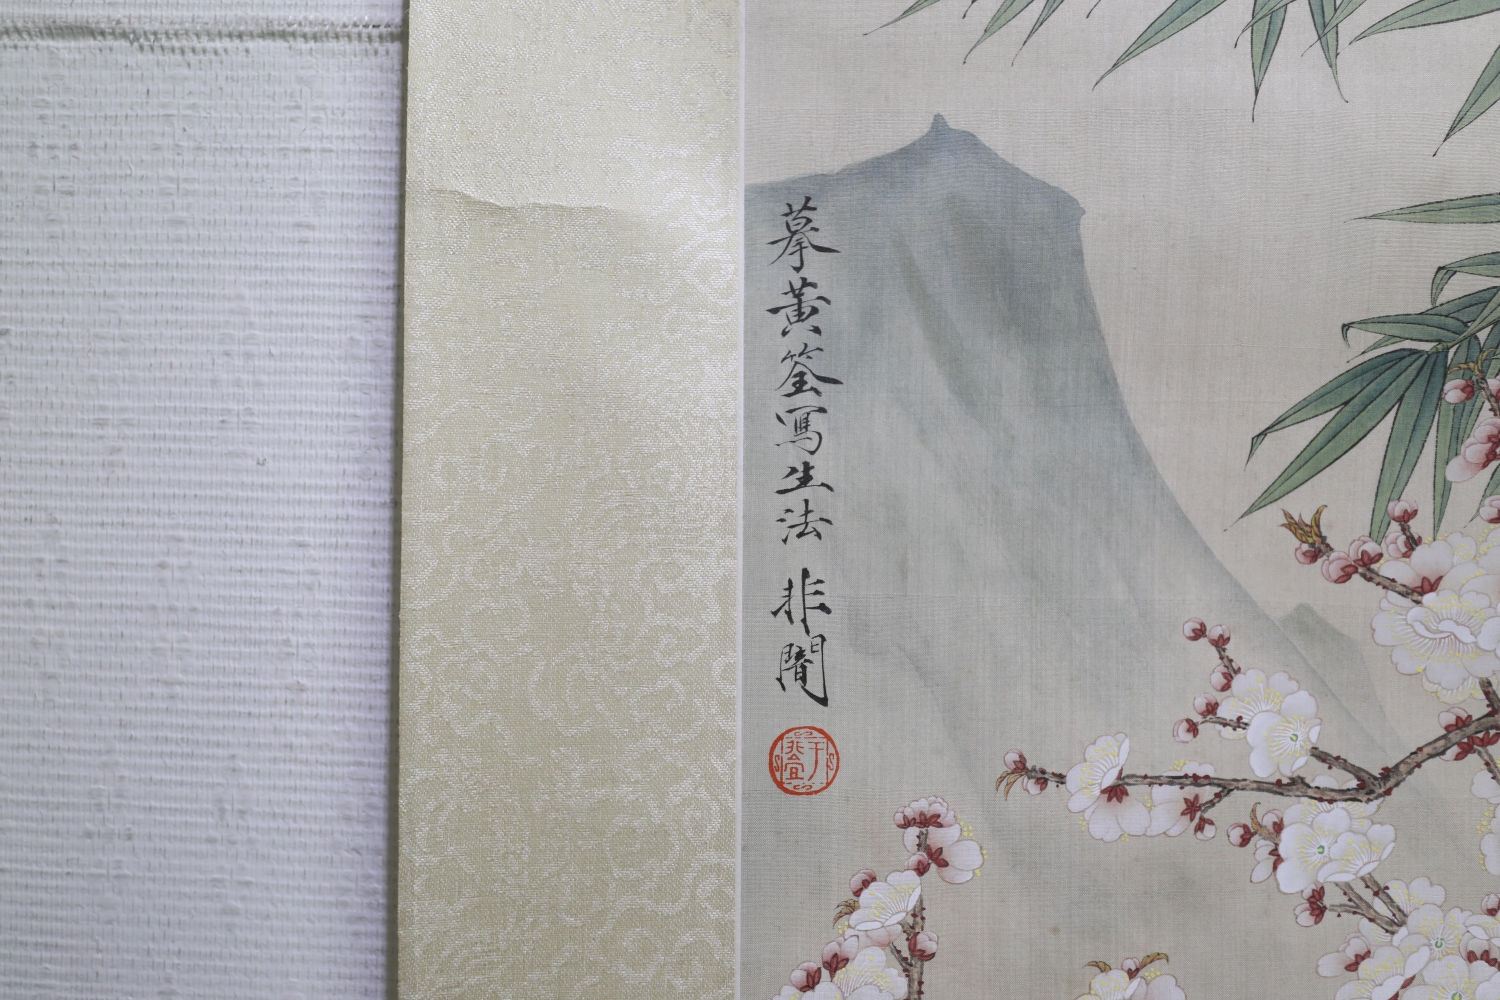 摹黃筌寫生法 非闇
于非闇